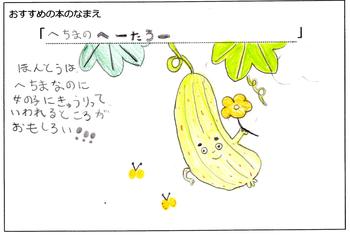 おすすめの本のなまえ
「へちまのへーたろー」
ほんとうは、
へちまなのに
女の子にきゅうりって、
いわれるところが
おもしろい!!!